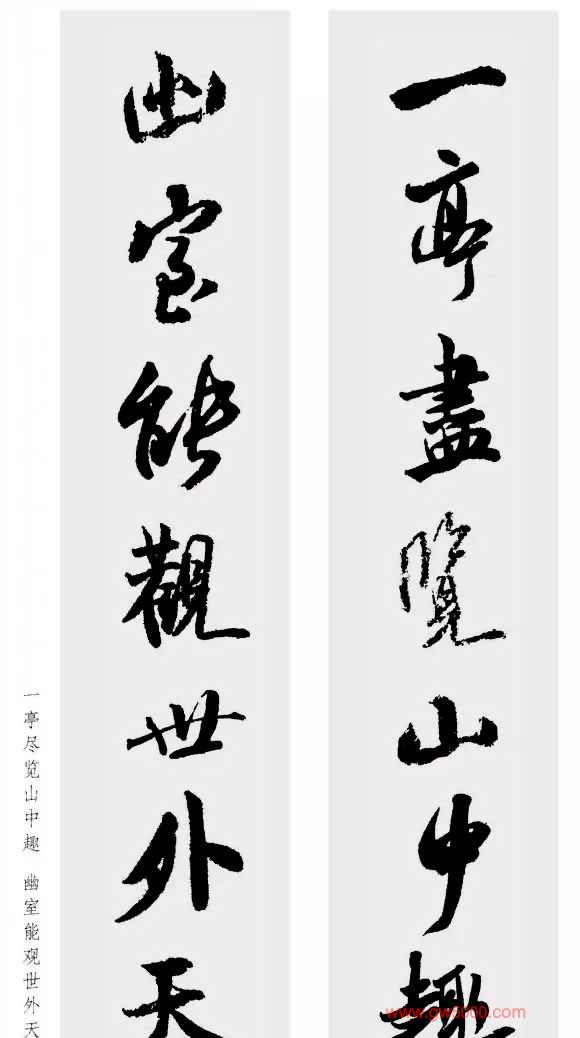 一亭盡覽山中趣
幽室能觀世外天
一亭尽览山中趣 幽室能观世外天
www.gw5000.com